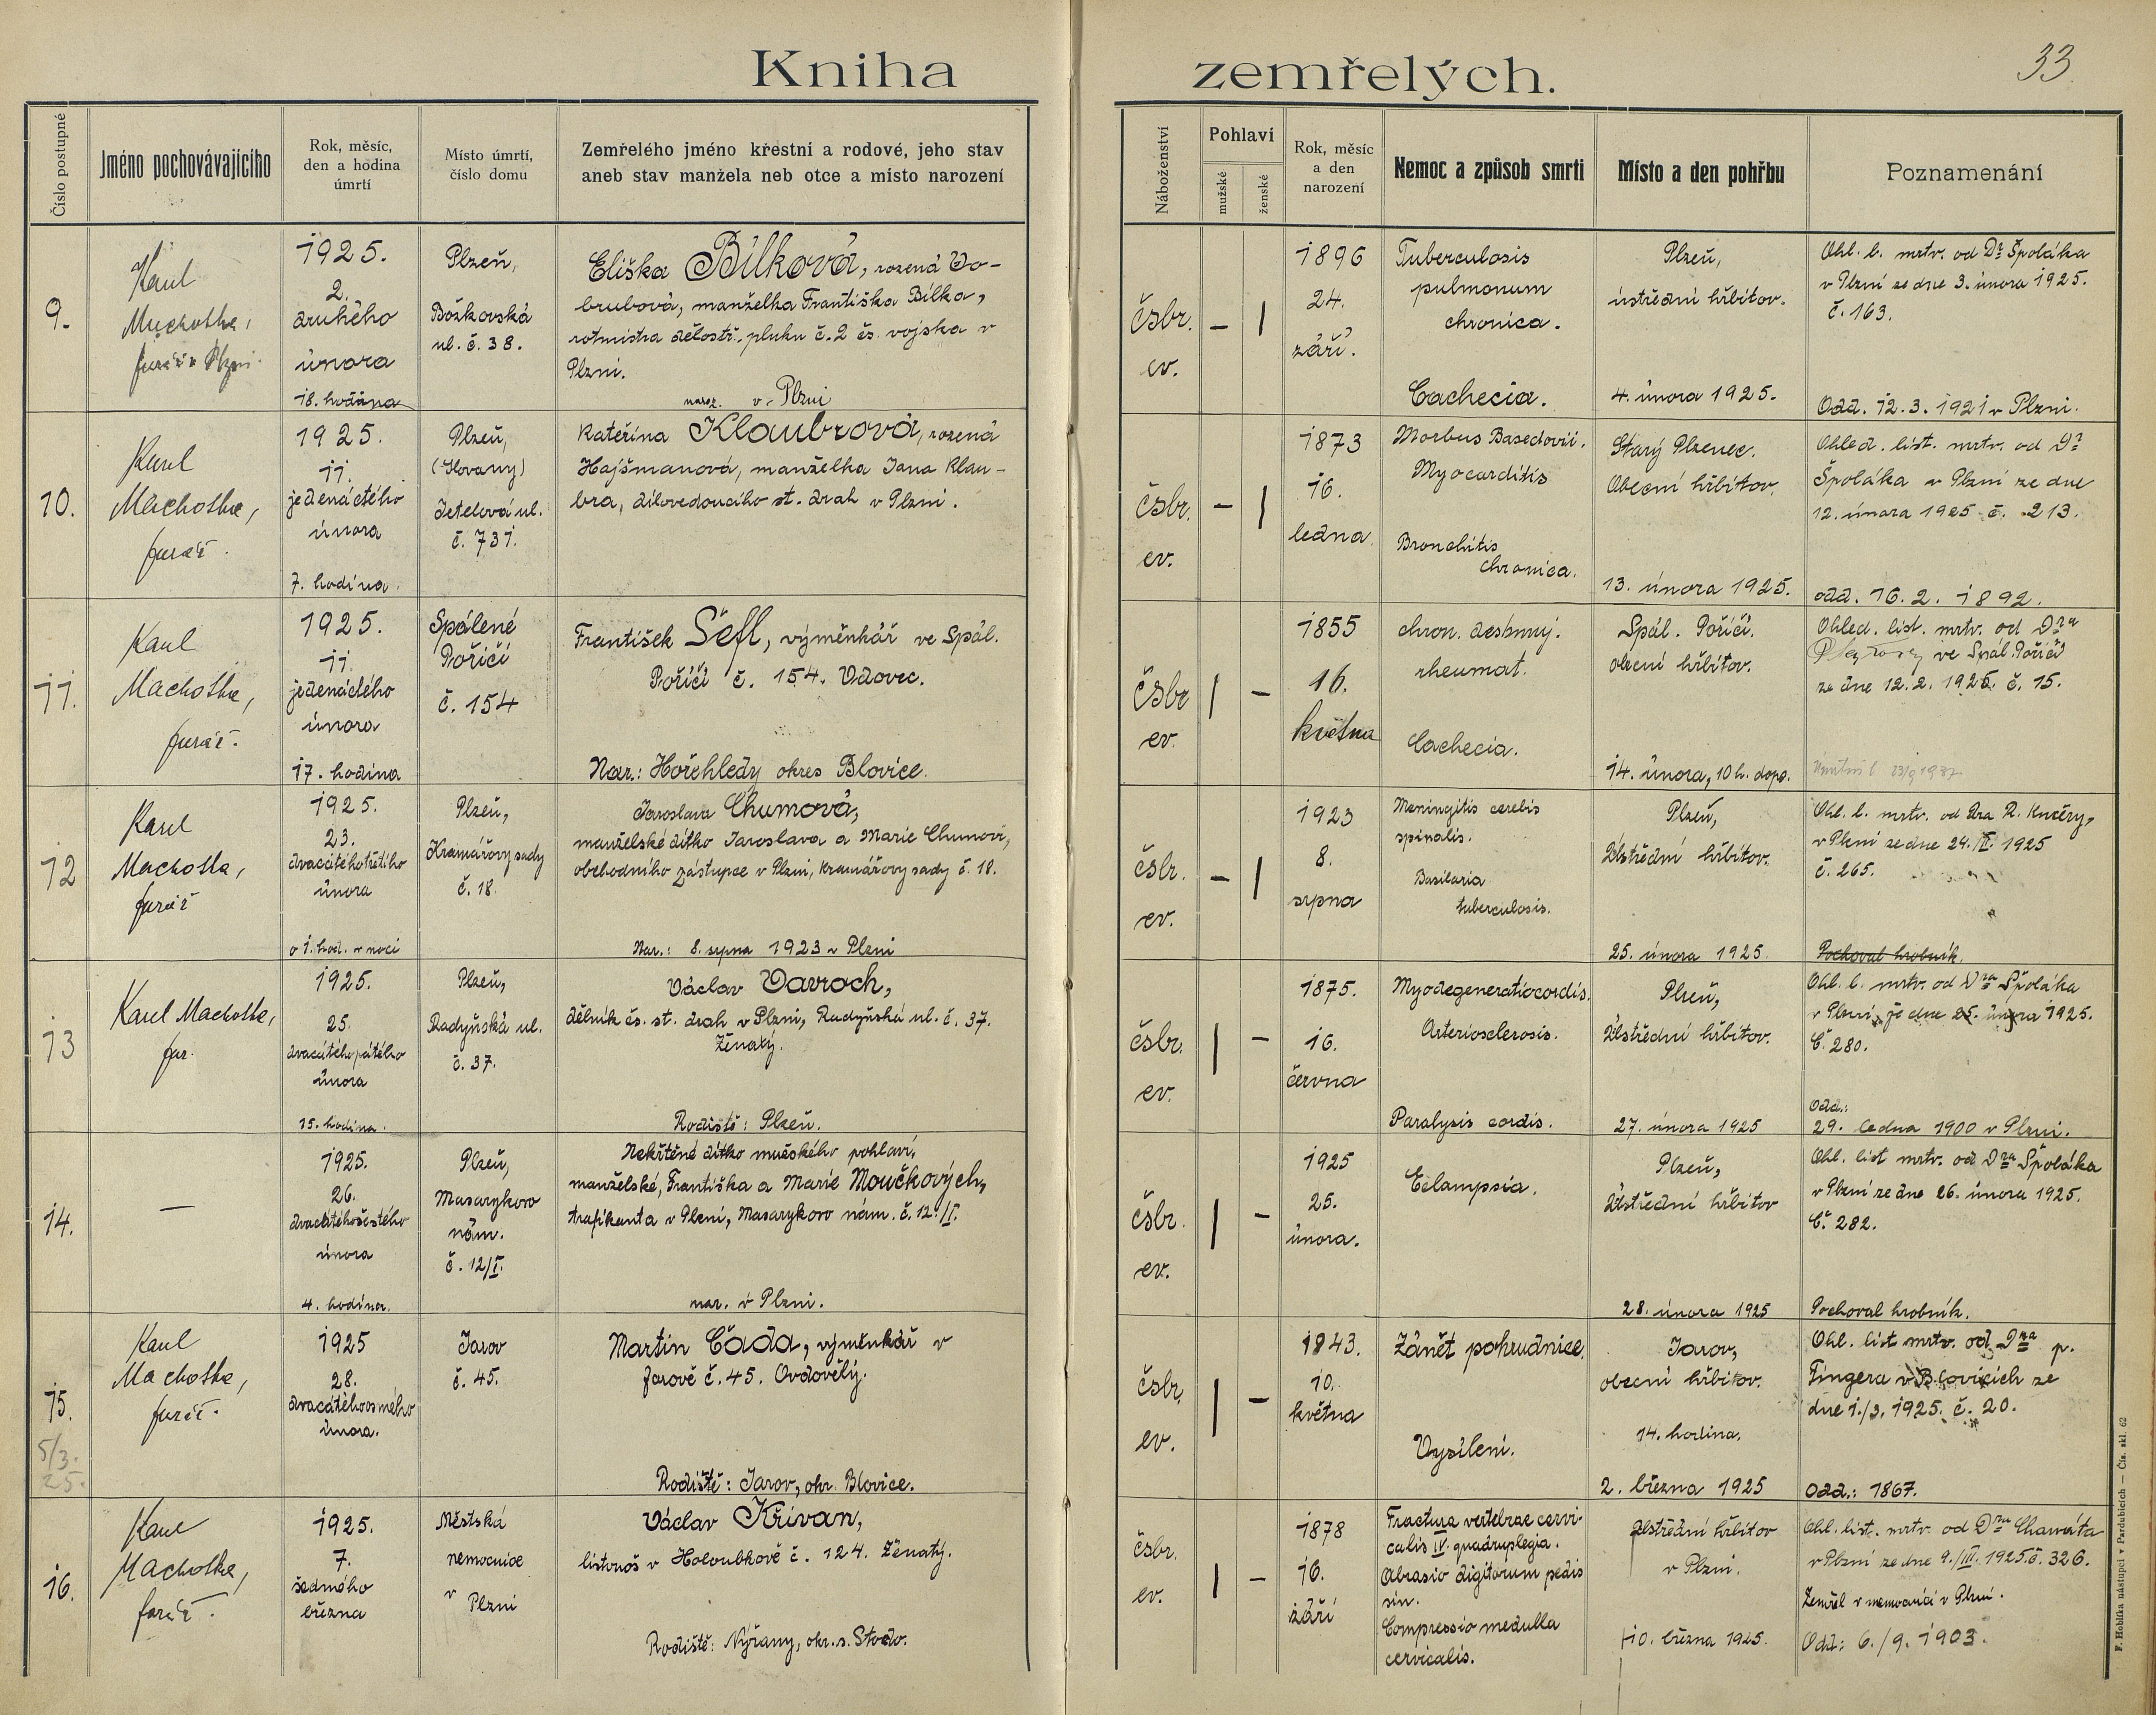 Kniha zemřelých.
33
Číslo postupné
Jméno pochovávajícího
Rok, měsíc,
den a hodina
úmrtí
Místo úmrtí,
číslo domu
Zemřelého jméno křestní a rodové, jeho stav
aneb stav manžela neb otce a místo narození
Náboženství
Pohlaví
mužské
ženské
Rok, měsíc
a den
narození
Nemoc a způsob smrti
Místo a den pohřbu
Poznamenání
9.
Karel
Machotka,
farář v Plzni.
1925.
2.
druhého
února
18. hodina
Plzeň,
Božkovská
ul. č. 38.
Eliška Bílková, rozená Do-
brubová, manželka Františka Bílka,
rotmistra dělostř. pluku č. 2 čs. vojska v
Plzni.
naroz. v Plzni
čsbr.
ev.
–
1
1896
24.
září.
Tuberculosis
pulmonum
chronica.
Cachecia.
Plzeň,
ústřední hřbitov.
4. února 1925.
Ohl. l. mrtv. od Dr. Špoláka
v Plzni ze dne 3. února 1925.
č. 163.
Odd. 12.3.1921 v Plzni.
10.
Karel
Machotka,
farář.
1925.
11.
jedenáctého
února
7. hodina.
Plzeň,
(Slovany)
Jetelová ul.
č. 731.
Kateřina Klaubrová, rozená
Hajšmanová, manželka Jana Klau-
bra, dílovedoucího st. drah v Plzni.
čsbr.
ev.
–
1
1873
16.
ledna
Morbus Basedovii.
Myocarditis
Bronchitis
chronica.
Starý Plzenec.
Obecní hřbitov.
13. února 1925.
Ohled. list. mrtv. od Dr
Špoláka v Plzni ze dne
12. února 1925 č. 213.
odd. 16.2. 1892.
11.
Karel
Machotka,
farář.
1925.
11.
jedenáctého
února
17. hodina
Spálené
Poříčí
č. 154
František Šefl, výměnkář ve Spál.
Poříčí č. 154. Vdovec.
Nar.: Hořehledy okres Blovice.
čsbr
ev.
1
–
1855
16.
května
chron. deshmuj.
rheumat.
Cachecia.
Spál. Poříčí.
obecní hřbitov.
14. února, 10 h. dopo.
Ohled. list. mrtv. od Dra
ve Spál. Poříčí
ze dne 12.2. 1925. č. 15.
23/9 1937
12
Karel
Machotka,
farář
1925.
23.
dvacátéhotřetího
února
o 1. hod. v noci
Plzeň,
Kramářovy sady
č. 18
Jaroslava Chumová,
manželské dítko Jaroslava a Marie Chumovi,
obchodního zástupce v Plzni, Kramářovy sady č. 18.
Nar.: 8. srpna 1923 v Plzni
čsbr.
ev.
–
1
1923
8.
srpna
Meningitis cerebis
spinalis.
Basilaria
tuberculosis.
Plzeň,
Ústřední hřbitov.
25. února 1925
Ohl. l. mrtv. od Dra R. Kučery,
v Plzni ze dne 24./II. 1925
č. 265.
Pochoval hrobník.
13
Karel Machotka,
far.
1925.
25.
dvacátéhopátého
února
15. hodina.
Plzeň,
Radyňská ul.
č. 37.
Václav Vavroch,
dělník čs. st. drah v Plzni, Radyňská ul. č. 37.
Ženatý.
Rodiště: Plzeň.
čsbr.
ev.
1
–
1875.
16.
června
Myodegeneratiocordis.
Arteriosclerosis.
Paralysis cordis.
Plzeň,
Ústřední hřbitov.
27. února 1925
Ohl. l. mrtv. od Dra Špoláka
v Plzni, ze dne 25. února 1925.
Č. 280.
Odd.:
29. ledna 1900 v Plzni.
14.
—
1925.
26.
dvacátéhošestého
února
4. hodina.
Plzeň,
Masarykovo
nám.
č. 12/I.
Nekřtěné dítko mužského pohlaví,
manželské, Františka a Marie Moučkových,
trafikanta v Plzni, Masarykovo nám. č. 12./I.
nar. v Plzni.
čsbr.
ev.
1
–
1925
25.
února.
Eclampsia.
Plzeň,
Ústřední hřbitov
28. února 1925
Ohl. list mrtv. od Dra Špoláka
v Plzni ze dne 26. února 1925.
Č. 282.
Pochoval hrobník.
15.
5/3.
25.
Karel
Machotka,
farář.
1925
28.
dvacátéhoosmého
února.
Jarov
č. 45.
Martin Čada, výměnkář v
Jarově č. 45. Ovdovělý.
Rodiště: Jarov, okr. Blovice.
čsbr.
ev.
1
–
1843.
10.
května
Zánět pohrudnice.
Vysílení.
Jarov,
obecní hřbitov.
14. hodina.
2. března 1925
Ohl. list mrtv. od Dra p.
Fingera v Blovicích ze
dne 1./3. 1925. č. 20.
Odd.: 1867.
16.
Karel
Machotka,
farář.
1925.
7.
sedmého
března
Městská
nemocnice
v
Plzni
Václav Křivan,
listonoš v Holoubkově č. 124. Ženatý.
Rodiště: Nýřany, okr. s. Stodo.
čsbr.
ev.
1
–
1878
16.
září
Fractura vertebrae cervi-
calis IV. quadruplegia.
Abrasio digitorum pedis
sin.
Compressio medulla
cervicalis.
Ústřední hřbitov
v Plzni.
10. března 1925.
Ohl. list. mrtv. od Dra Chaváta
v Plzni ze dne 9./III. 1925 č. 326.
Zemřel v nemocnici v Plzni.
Odd.: 6./9. 1903.
F. Hoblíka nástupci v Pardubicích — Čís. skl. 62